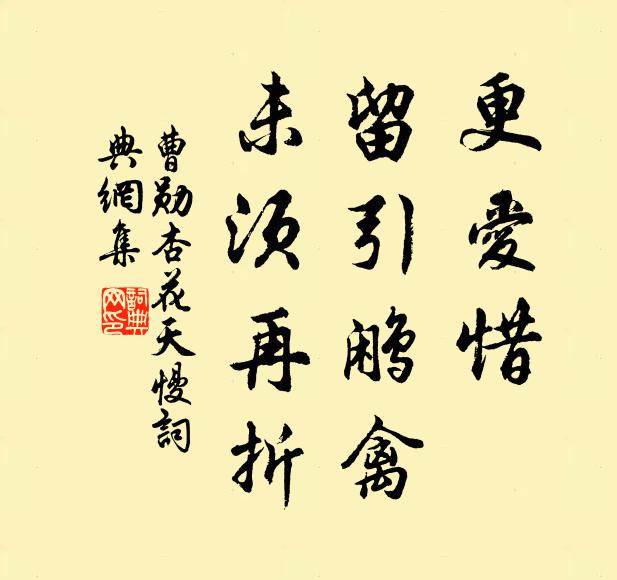 更愛惜
留引鹇禽
未須再折
曹勛杏花天慢詞
典網集
詞典網印